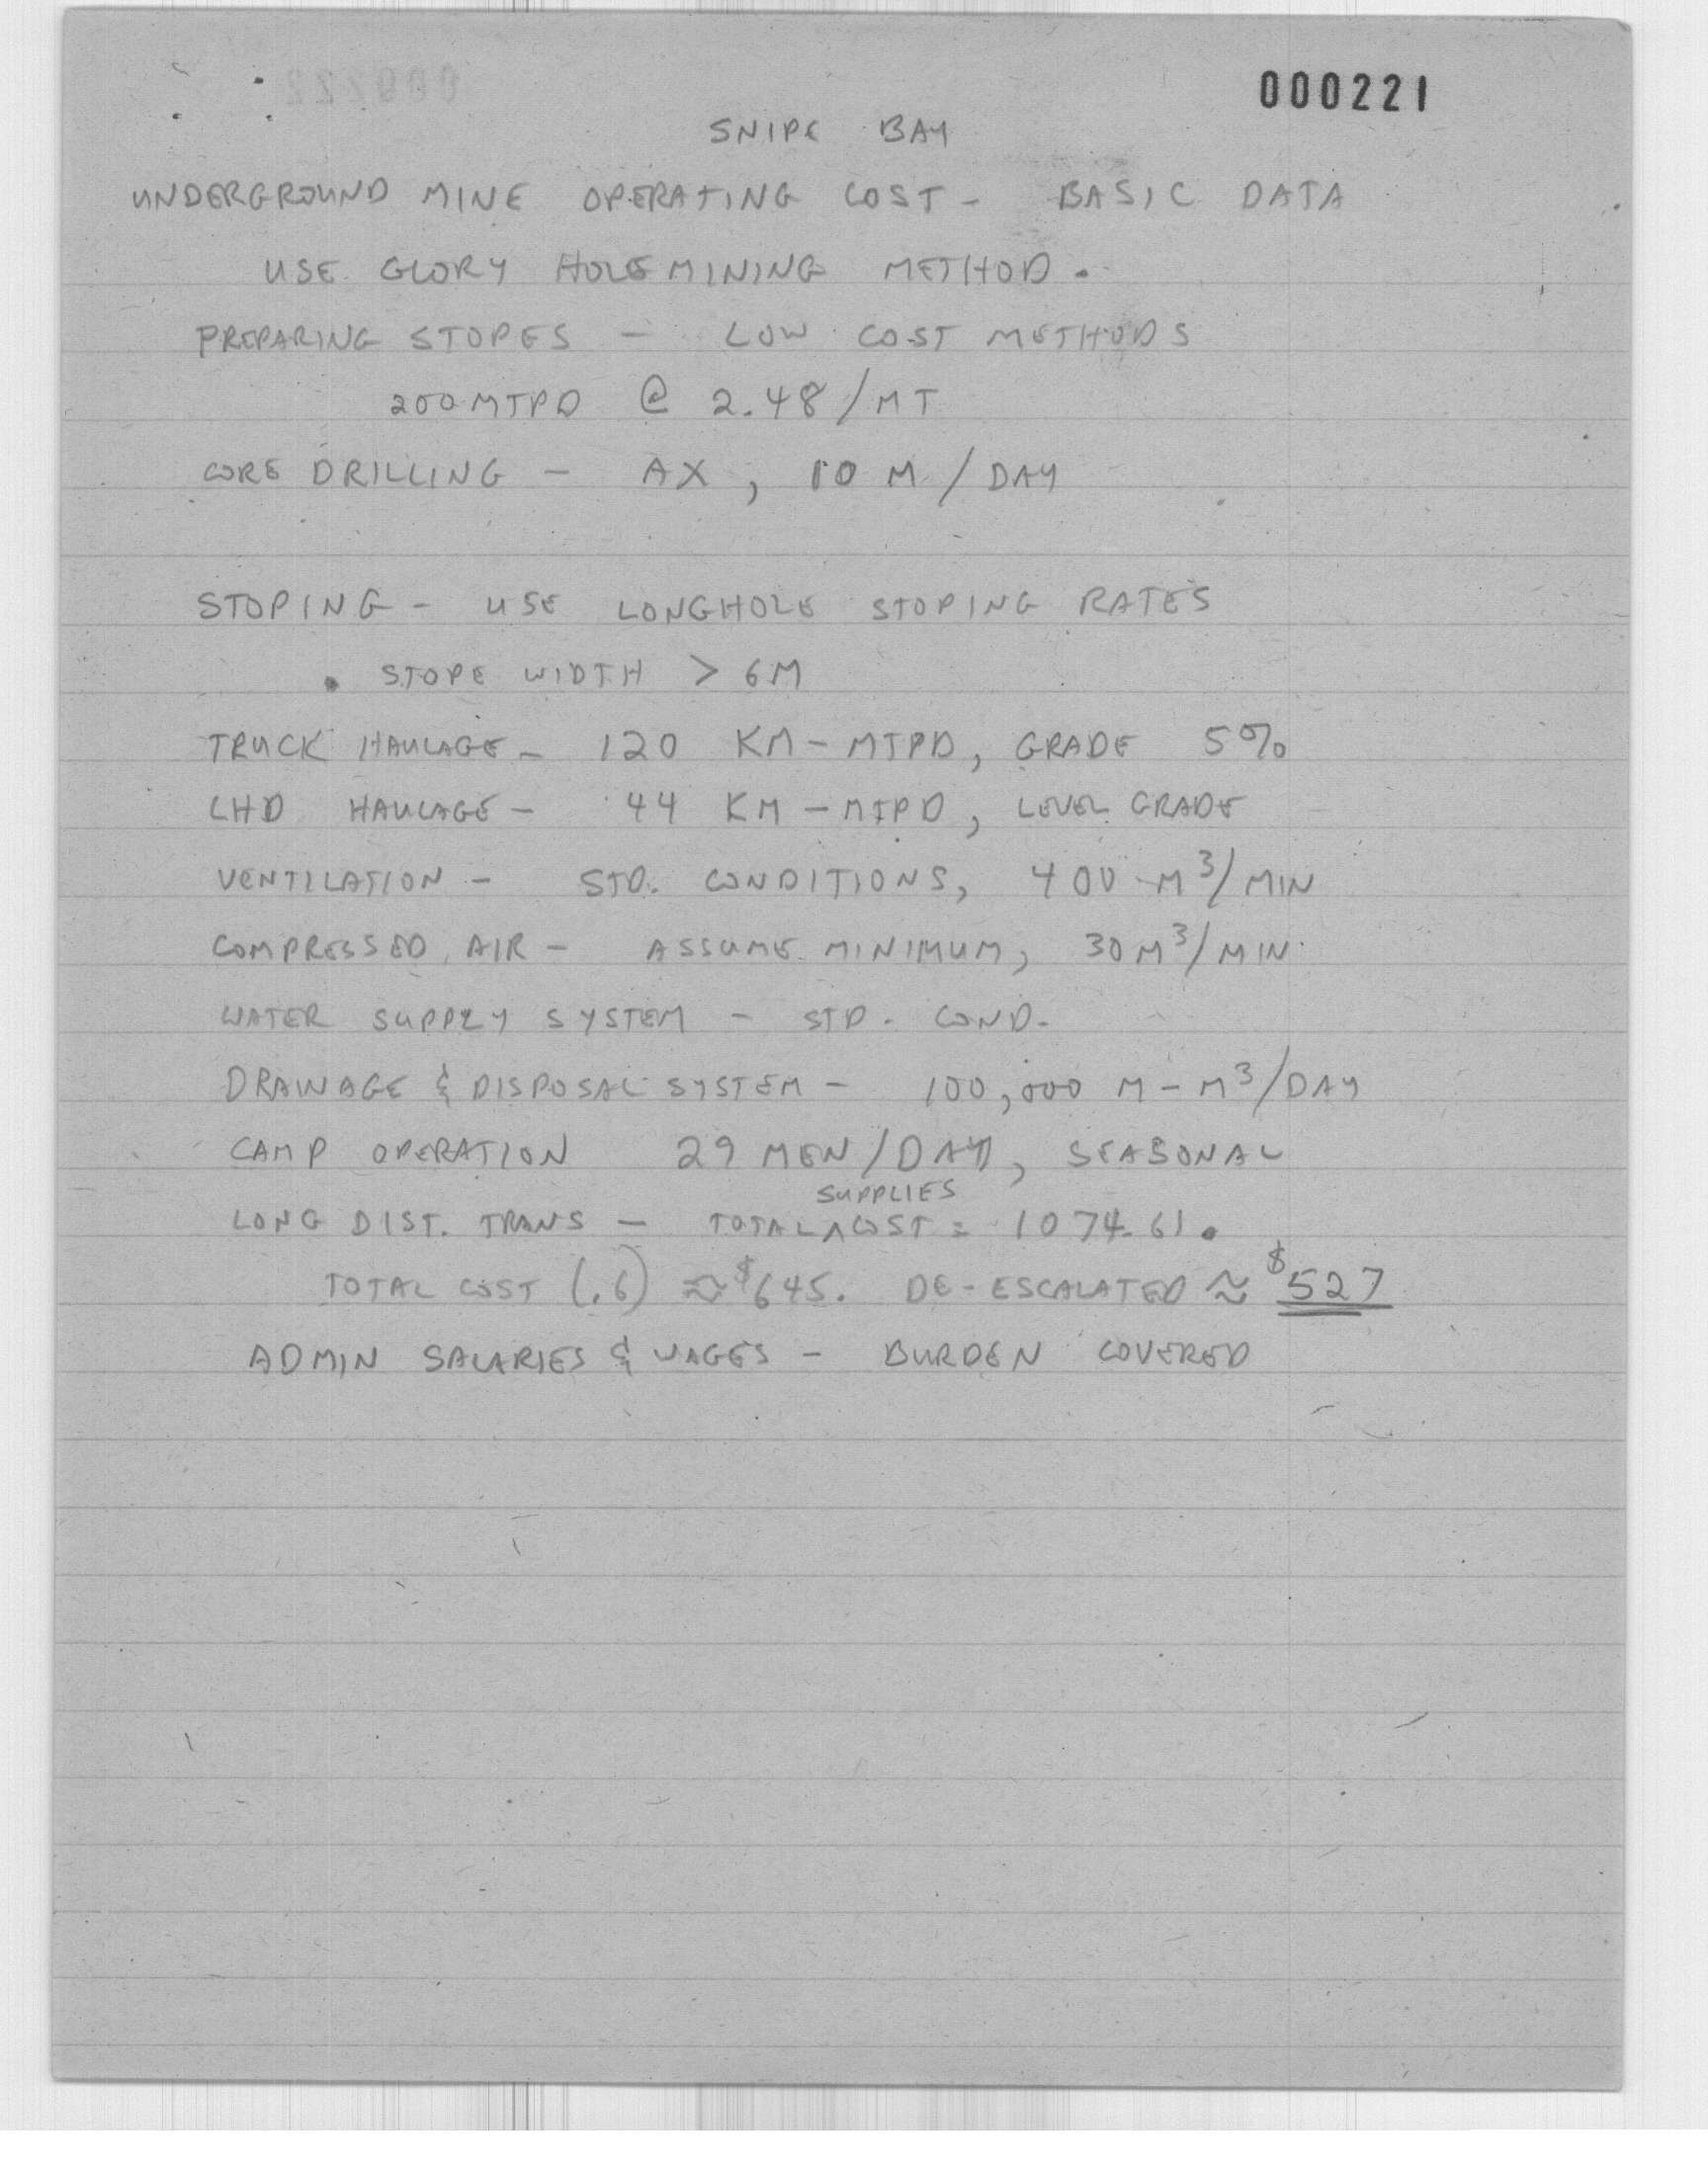 000221
SNIPE BAY
UNDERGROUND MINE OPERATING COST - BASIC DATA
USE GLORY HOLE MINING METHOD.
PREPARING STOPES - LOW COST METHODS
200 MTPD @ 2.48/MT
CORE DRILLING - AX, 10 M/DAY
STOPING - USE LONGHOLE STOPING RATES
• STOPE WIDTH > 6M
TRUCK HAULAGE - 120 KM-MTPD, GRADE 5%
LHD HAULAGE - 44 KM-MTPD, LEVEL GRADE
VENTILATION - STD. CONDITIONS, 400 M³/MIN
COMPRESSED AIR - ASSUME MINIMUM, 30 M³/MIN
WATER SUPPLY SYSTEM - STD. COND.
DRAINAGE & DISPOSAL SYSTEM - 100,000 M-M³/DAY
CAMP OPERATION 29 MEN/DAY, SEASONAL
SUPPLIES
LONG DIST. TRANS - TOTAL ^ COST = 1074.61.
TOTAL COST (.6) ≈ $645. DE-ESCALATED ≈ $527
ADMIN SALARIES & WAGES - BURDEN COVERED